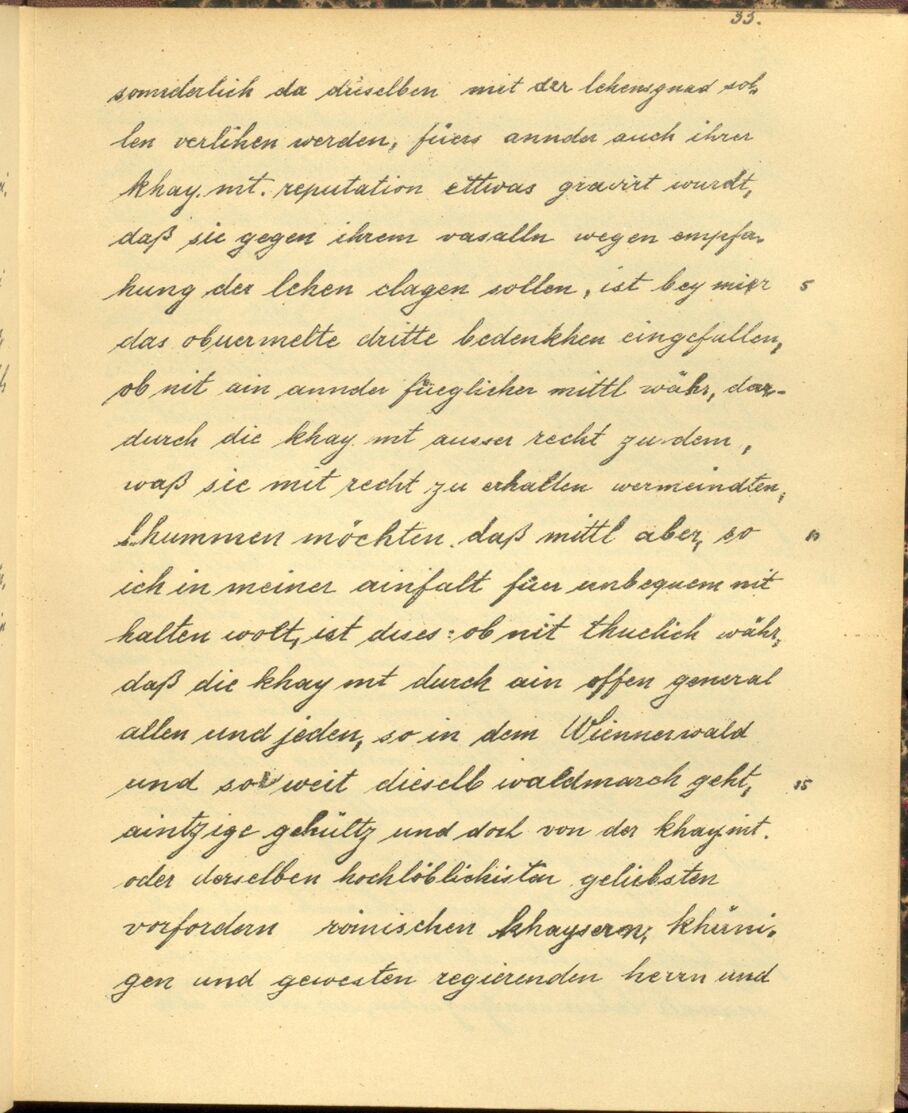 33.
sonnderlich da dieselben mit der lehensgnad sol-
len verlihen werden, füers annder auch ihrer
khay. mt. reputation ettwas gravirt wurdt,
daß sie gegen ihrem vasalln wegen empfa-
hung der lehen clagen sollen, ist bey mier 5
das obuermelte dritte bedenkhen eingefallen,
ob nit ain annder füeglicher mittl währ, dar-
durch die khay. mt ausser recht zu dem,
waß sie mit recht zu erhalten wermeindten,
khummen möchten. daß mittl aber, so 10
ich in meiner ainfalt füer unbequem nit
halten wolt, ist dises: ob nit thuelich währ,
daß die khay mt durch ain offen general
allen und jeden, so in dem Wiennerwald
und so weit dieselb waldmarch geht, 15
aintzige gehültz und doch von der khay. mt.
oder derselben hochlöblichisten geliebsten
vorfordern römischen khaysern, khüni-
gen und gewesten regierenden herrn und